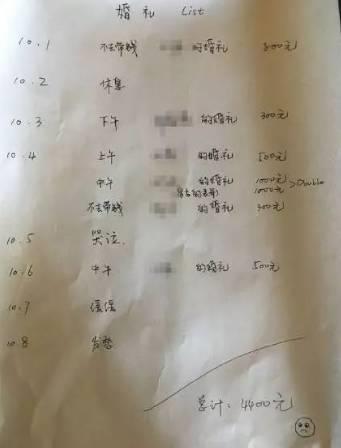 婚礼 List
10.1 不去带钱 的婚礼 800元
10.2 休息
10.3 下午 的婚礼 300元
10.4 上午 的婚礼 500元
中午 的婚礼 1000元 >Double
1000元
不去带钱 的婚礼 300元
10.5 哭泣.
10.6 中午 的婚礼 500元
10.7 缓缓
10.8
总计: 4400元